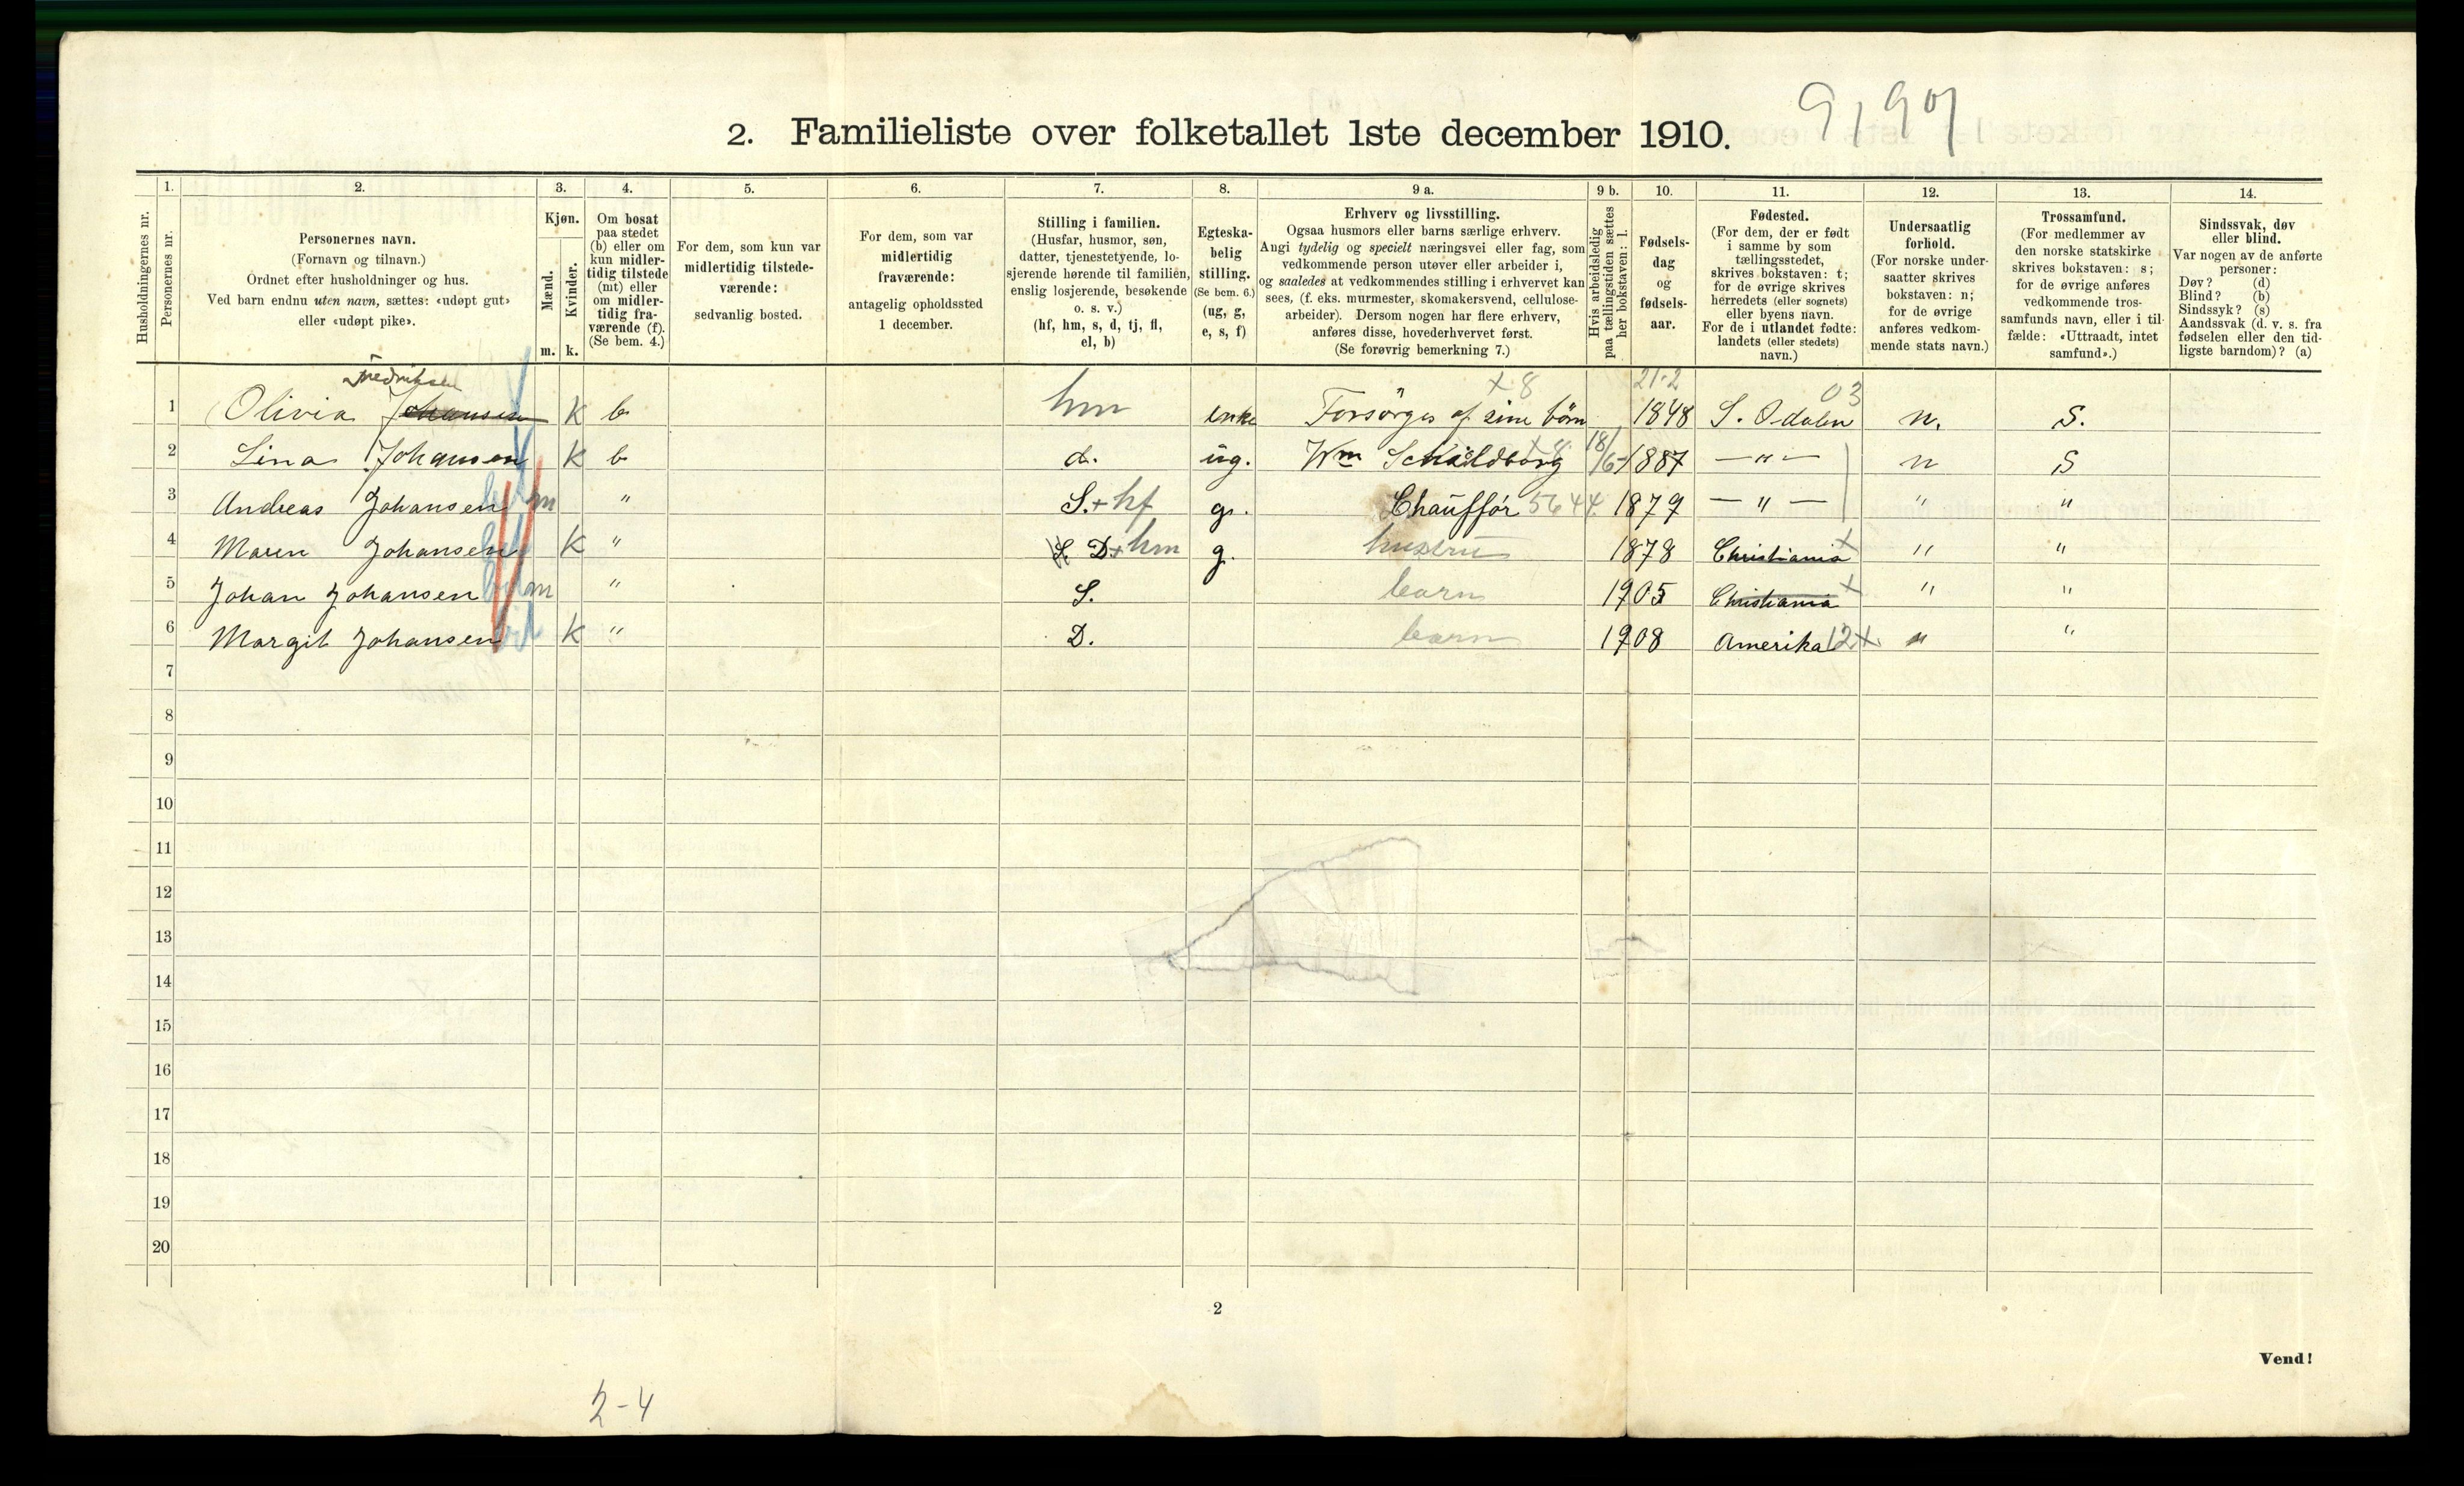 9,907
2. Familieliste over folketallet 1ste december 1910.
Husholdningernes nr.
1.
Personernes nr.
2.
Personernes navn.
(Fornavn og tilnavn.)
Ordnet efter husholdninger og hus.
Ved barn endnu uten navn, sættes: «udøpt gut»
eller «udøpt pike».
3.
Kjøn.
Mænd.
Kvinder.
m. k.
4.
Om bosat
paa stedet
(b) eller om
kun midler-
tidig tilstede
(mt) eller
om midler-
tidig fra-
værende (f).
(Se bem. 4.)
5.
For dem, som kun var
midlertidig tilstede-
værende:
sedvanlig bosted.
6.
For dem, som var
midlertidig
fraværende:
antagelig opholdssted
1 december.
7.
Stilling i familien.
(Husfar, husmor, søn,
datter, tjenestetyende, lo-
sjerende hørende til familien,
enslig losjerende, besøkende
o. s. v.)
(hf, hm, s, d, tj, fl,
el, b)
8.
Egteska-
belig
stilling.
(Se bem. 6.)
(ug, g,
e, s, f)
9 a.
Erhverv og livsstilling.
Ogsaa husmors eller barns særlige erhverv.
Angi tydelig og specielt næringsvei eller fag, som
vedkommende person utøver eller arbeider i,
og saaledes at vedkommendes stilling i erhvervet kan
sees, (f. eks. murmester, skomakersvend, cellulose-
arbeider). Dersom nogen har flere erhverv,
anføres disse, hovederhvervet først.
(Se forøvrig bemerkning 7.)
9 b.
Hvis arbeidsledig
paa tællingstiden sættes
her bokstaven: l.
10.
Fødsels-
dag
og
fødsels-
aar.
11.
Fødested.
(For dem, der er født
i samme by som
tællingsstedet,
skrives bokstaven: t;
for de øvrige skrives
herredets (eller sognets)
eller byens navn.
For de i utlandet fødte:
landets (eller stedets)
navn.)
12.
Undersaatlig
forhold.
(For norske under-
saatter skrives
bokstaven: n;
for de øvrige
anføres vedkom-
mende stats navn.)
13.
Trossamfund.
(For medlemmer av
den norske statskirke
skrives bokstaven: s;
for de øvrige anføres
vedkommende tros-
samfunds navn, eller i til-
fælde: «Uttraadt, intet
samfund».)
14.
Sindssvak, døv
eller blind.
Var nogen av de anførte
personer:
Døv? (d)
Blind? (b)
Sindssyk? (s)
Aandssvak (d. v. s. fra
fødselen eller den tid-
ligste barndom)? (a)
Fredriksen x 8 21-2 03
1 Olivia Johansen K b hm enke Forsörges af sine börn 1848 S. Odalen n. S.
2 Lina Johansen K b d. ug. Wm Schildborg x8 18/6- 1887 — " — n S
3 Andreas Johansen m " S.+hf g. Chauffør 5644 1879 — " — " "
4 Maren Johansen K " D+hm g. hustru 1878 Christiania x " "
5 Johan Johansen m " S. barn 1905 Christiania x " "
6 Margit Johansen K " D. barn 1908 Amerika 12x " "
7
8
9
10
11
12
13
14
15
16
17
18
19
20
2
Vend!
2-4